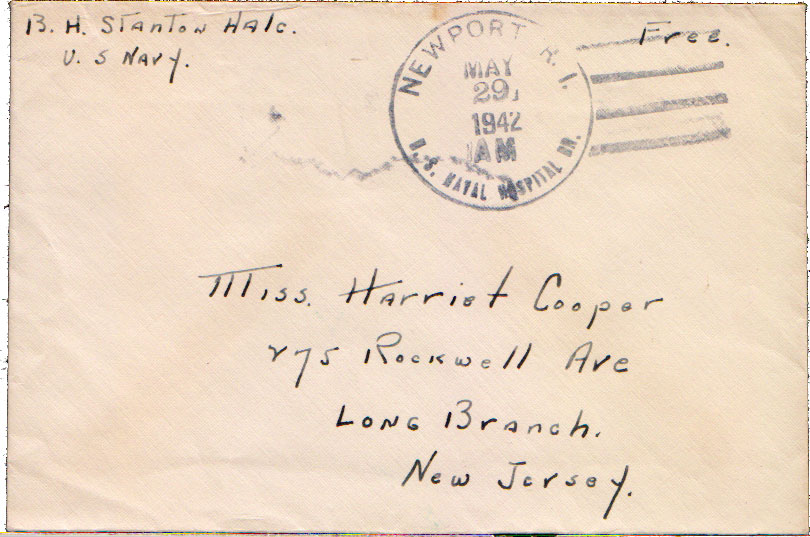 B. H. Stanton Hale.
U. S Navy.
Free.
NEWPORT R. I.
MAY
29
1942
AM
U.S. NAVAL HOSPITAL BR.
Miss. Harriet Cooper
275 Rockwell Ave
Long Branch.
New Jersey.